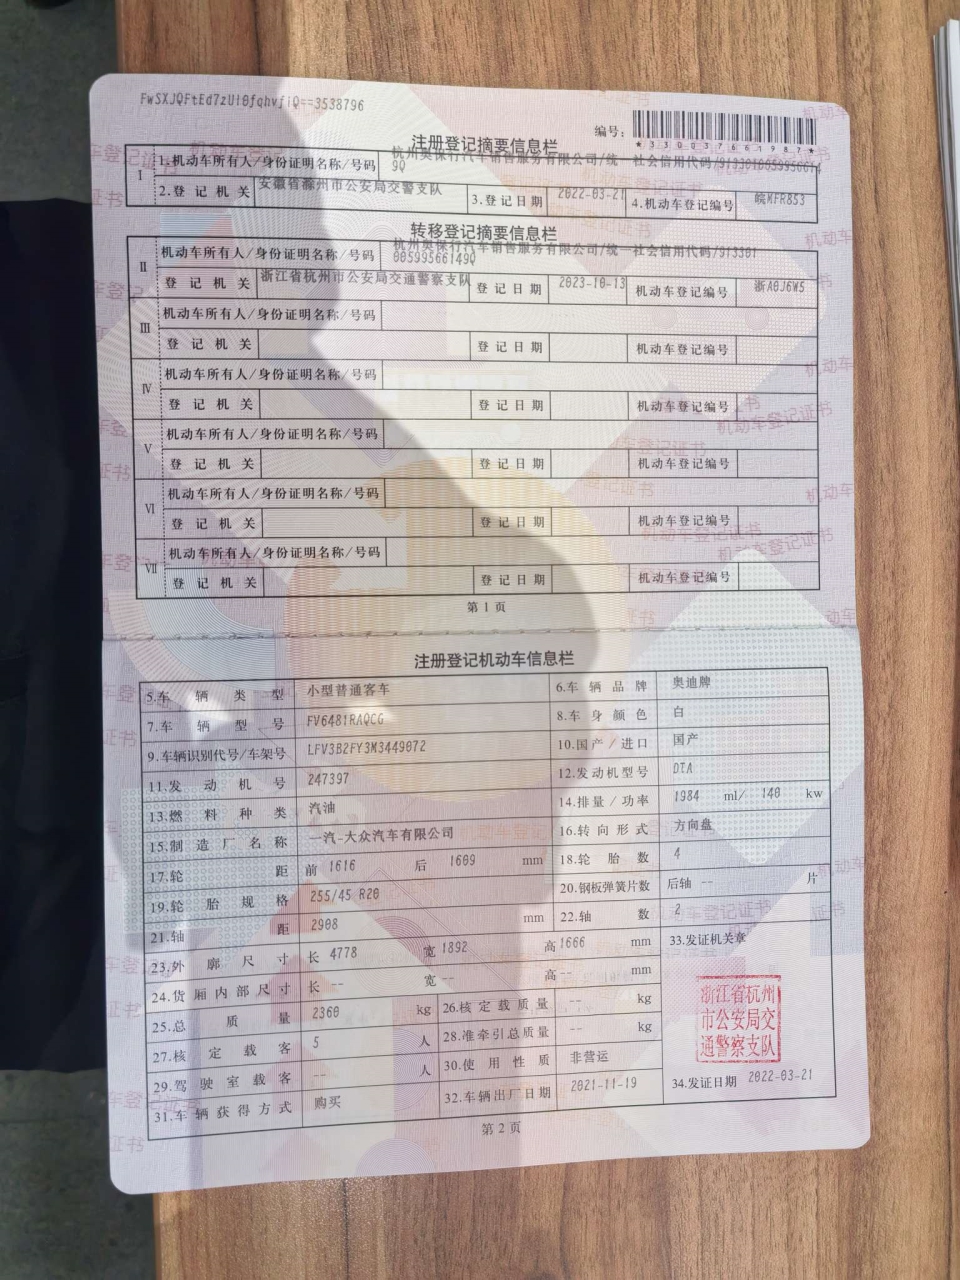 FwSXJQFtEd7zUl0fqhvfjQ==3538796
编号：
*330037661987*
注册登记摘要信息栏
I 1.机动车所有人/身份证明名称/号码 杭州奥保行汽车销售服务有限公司/统一社会信用代码/91330100599566149Q
2.登记机关 安徽省滁州市公安局交警支队 3.登记日期 2022-03-21 4.机动车登记编号 皖MFR853
转移登记摘要信息栏
II 机动车所有人/身份证明名称/号码 杭州奥保行汽车销售服务有限公司/统一社会信用代码/913301
00599566149Q
登记机关 浙江省杭州市公安局交通警察支队 登记日期 2023-10-13 机动车登记编号 浙A0J6W5
III 机动车所有人/身份证明名称/号码
登记机关 登记日期 机动车登记编号
IV 机动车所有人/身份证明名称/号码
登记机关 登记日期 机动车登记编号
V 机动车所有人/身份证明名称/号码
登记机关 登记日期 机动车登记编号
VI 机动车所有人/身份证明名称/号码
登记机关 登记日期 机动车登记编号
VII 机动车所有人/身份证明名称/号码
登记机关 登记日期 机动车登记编号
第1页
注册登记机动车信息栏
5.车辆类型 小型普通客车 6.车辆品牌 奥迪牌
7.车辆型号 FV6481RAQCG 8.车身颜色 白
9.车辆识别代号/车架号 LFV3B2FY3M3449072 10.国产/进口 国产
11.发动机号 247397 12.发动机型号 DTA
13.燃料种类 汽油 14.排量/功率 1984 ml/ 140 kw
15.制造厂名称 一汽-大众汽车有限公司 16.转向形式 方向盘
17.轮距 前 1616 后 1609 mm 18.轮胎数 4
19.轮胎规格 255/45 R20 20.钢板弹簧片数 后轴 -- 片
21.轴距 2908 mm 22.轴数 2
23.外廓尺寸 长 4778 宽 1892 高 1666 mm 33.发证机关章
24.货厢内部尺寸 长 -- 宽 -- 高 -- mm
25.总质量 2360 kg 26.核定载质量 -- kg
27.核定载客 5 人 28.准牵引总质量 -- kg
29.驾驶室载客 -- 人 30.使用性质 非营运
31.车辆获得方式 购买 32.车辆出厂日期 2021-11-19
浙江省杭州
市公安局交
通警察支队
34.发证日期 2022-03-21
第2页